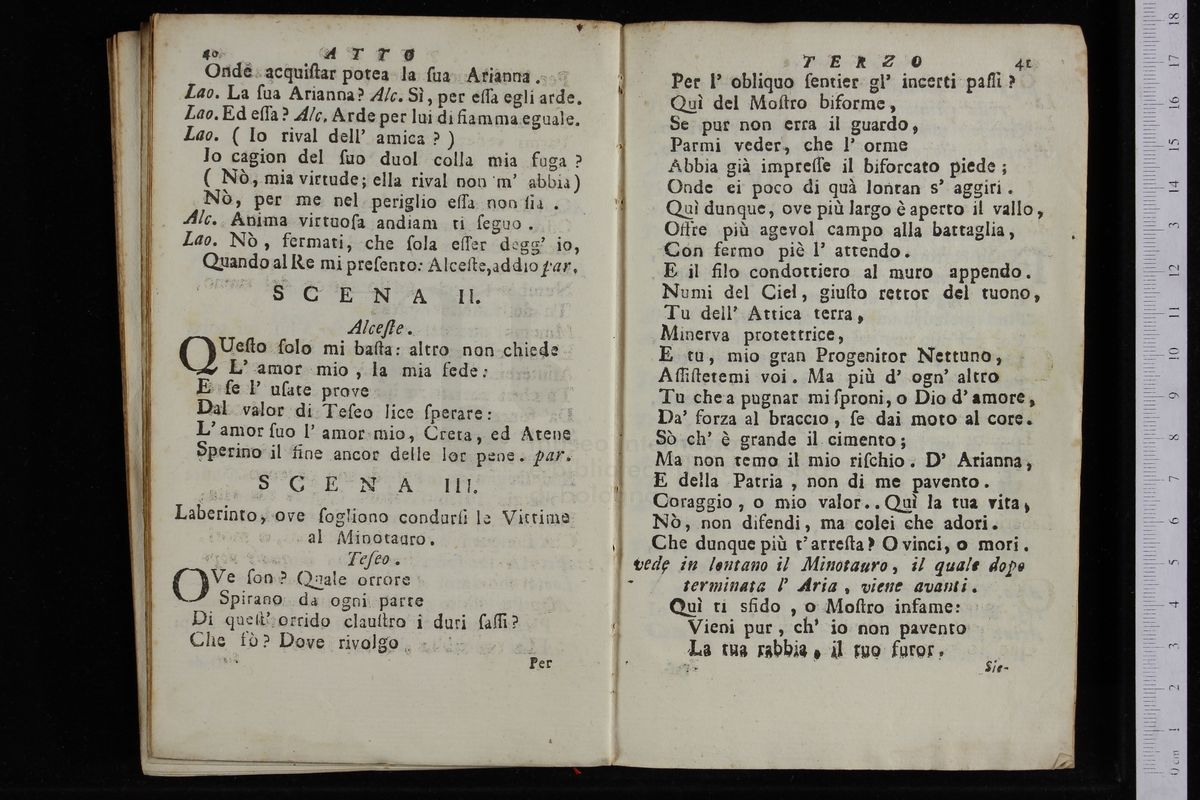 40 ATTO
Onde acquiſtar potea la ſua Arianna.
Lao. La ſua Arianna? Alc. Sì, per eſſa egli arde.
Lao. Ed eſſa? Alc. Arde per lui di fiamma eguale.
Lao. ( Io rival dell' amica ? )
Io cagion del ſuo duol colla mia fuga ?
( Nò, mia virtude; ella rival non m' abbia)
Nò, per me nel periglio eſſa non ſia .
Alc. Anima virtuoſa andiam ti ſeguo .
Lao. Nò , fermati, che ſola eſſer degg' io,
Quando al Re mi preſento: Alceſte, addio par.
SCENA II.
Alceſte.
QUeſto ſolo mi baſta: altro non chiede
L' amor mio , la mia fede:
E ſe l' uſate prove
Dal valor di Teſeo lice ſperare:
L'amor ſuo l' amor mio, Creta, ed Atene
Sperino il fine ancor delle lor pene. par.
SCENA III.
Laberinto, ove ſogliono condurſi le Vittime
al Minotauro.
Teſeo.
OVe ſon? Quale orrore
Spirano da ogni parte
Di queſt' orrido clauſtro i duri ſaſſi?
Che fò? Dove rivolgo
Per
TERZO 41
Per l' obliquo ſentier gl' incerti paſſi ?
Quì del Moſtro biforme,
Se pur non erra il guardo,
Parmi veder, che l' orme
Abbia già impreſſe il biforcato piede ;
Onde ei poco di quà lontan s' aggiri .
Quì dunque, ove più largo è aperto il vallo,
Offre più agevol campo alla battaglia,
Con fermo piè l' attendo.
E il filo condottiero al muro appendo.
Numi del Ciel, giuſto rettor del tuono,
Tu dell' Attica terra,
Minerva protettrice,
E tu, mio gran Progenitor Nettuno,
Aſſiſtetemi voi. Ma più d' ogn' altro
Tu che a pugnar mi ſproni, o Dio d'amore,
Da' forza al braccio, ſe dai moto al core.
Sò ch' è grande il cimento;
Ma non temo il mio riſchio. D' Arianna,
E della Patria , non di me pavento.
Coraggio , o mio valor.. Quì la tua vita,
Nò, non difendi, ma colei che adori.
Che dunque più t'arreſta? O vinci, o mori.
vede in lontano il Minotauro, il quale dopo
terminata l' Aria , viene avanti.
Quì ti sfido , o Moſtro infame:
Vieni pur, ch' io non pavento
La tua rabbia, il tuo furor.
Sie-